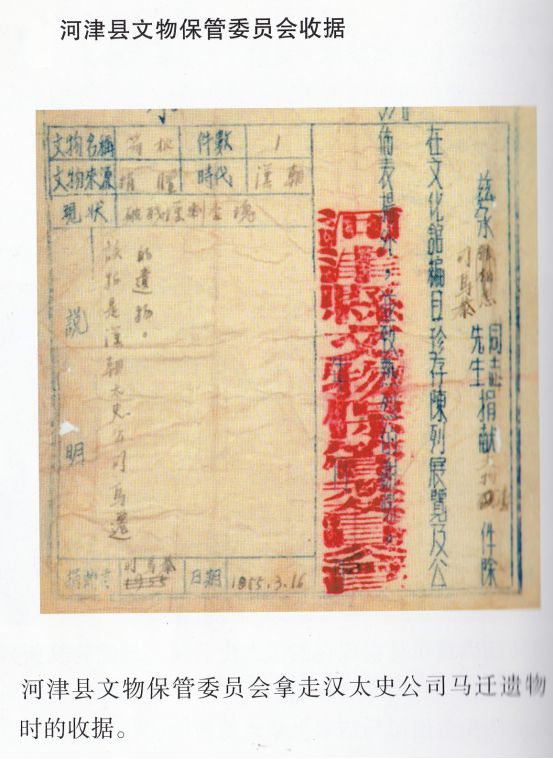 河津县文物保管委员会收据
兹承
司马泰
同志
先生
捐献文物 件除
在文化館編目珍存陳列展覽及公
佈表揚外，並致
河津縣文物保管委員會
文物名稱 笏板 件數 1
文物來源 捐贈 時代 漢朝
現狀 破殘
說明
該物是漢朝太史公司馬遷
的遺物。
司馬泰
日期 1955.3.16
河津县文物保管委员会拿走汉太史公司马迁遗物
时的收据。